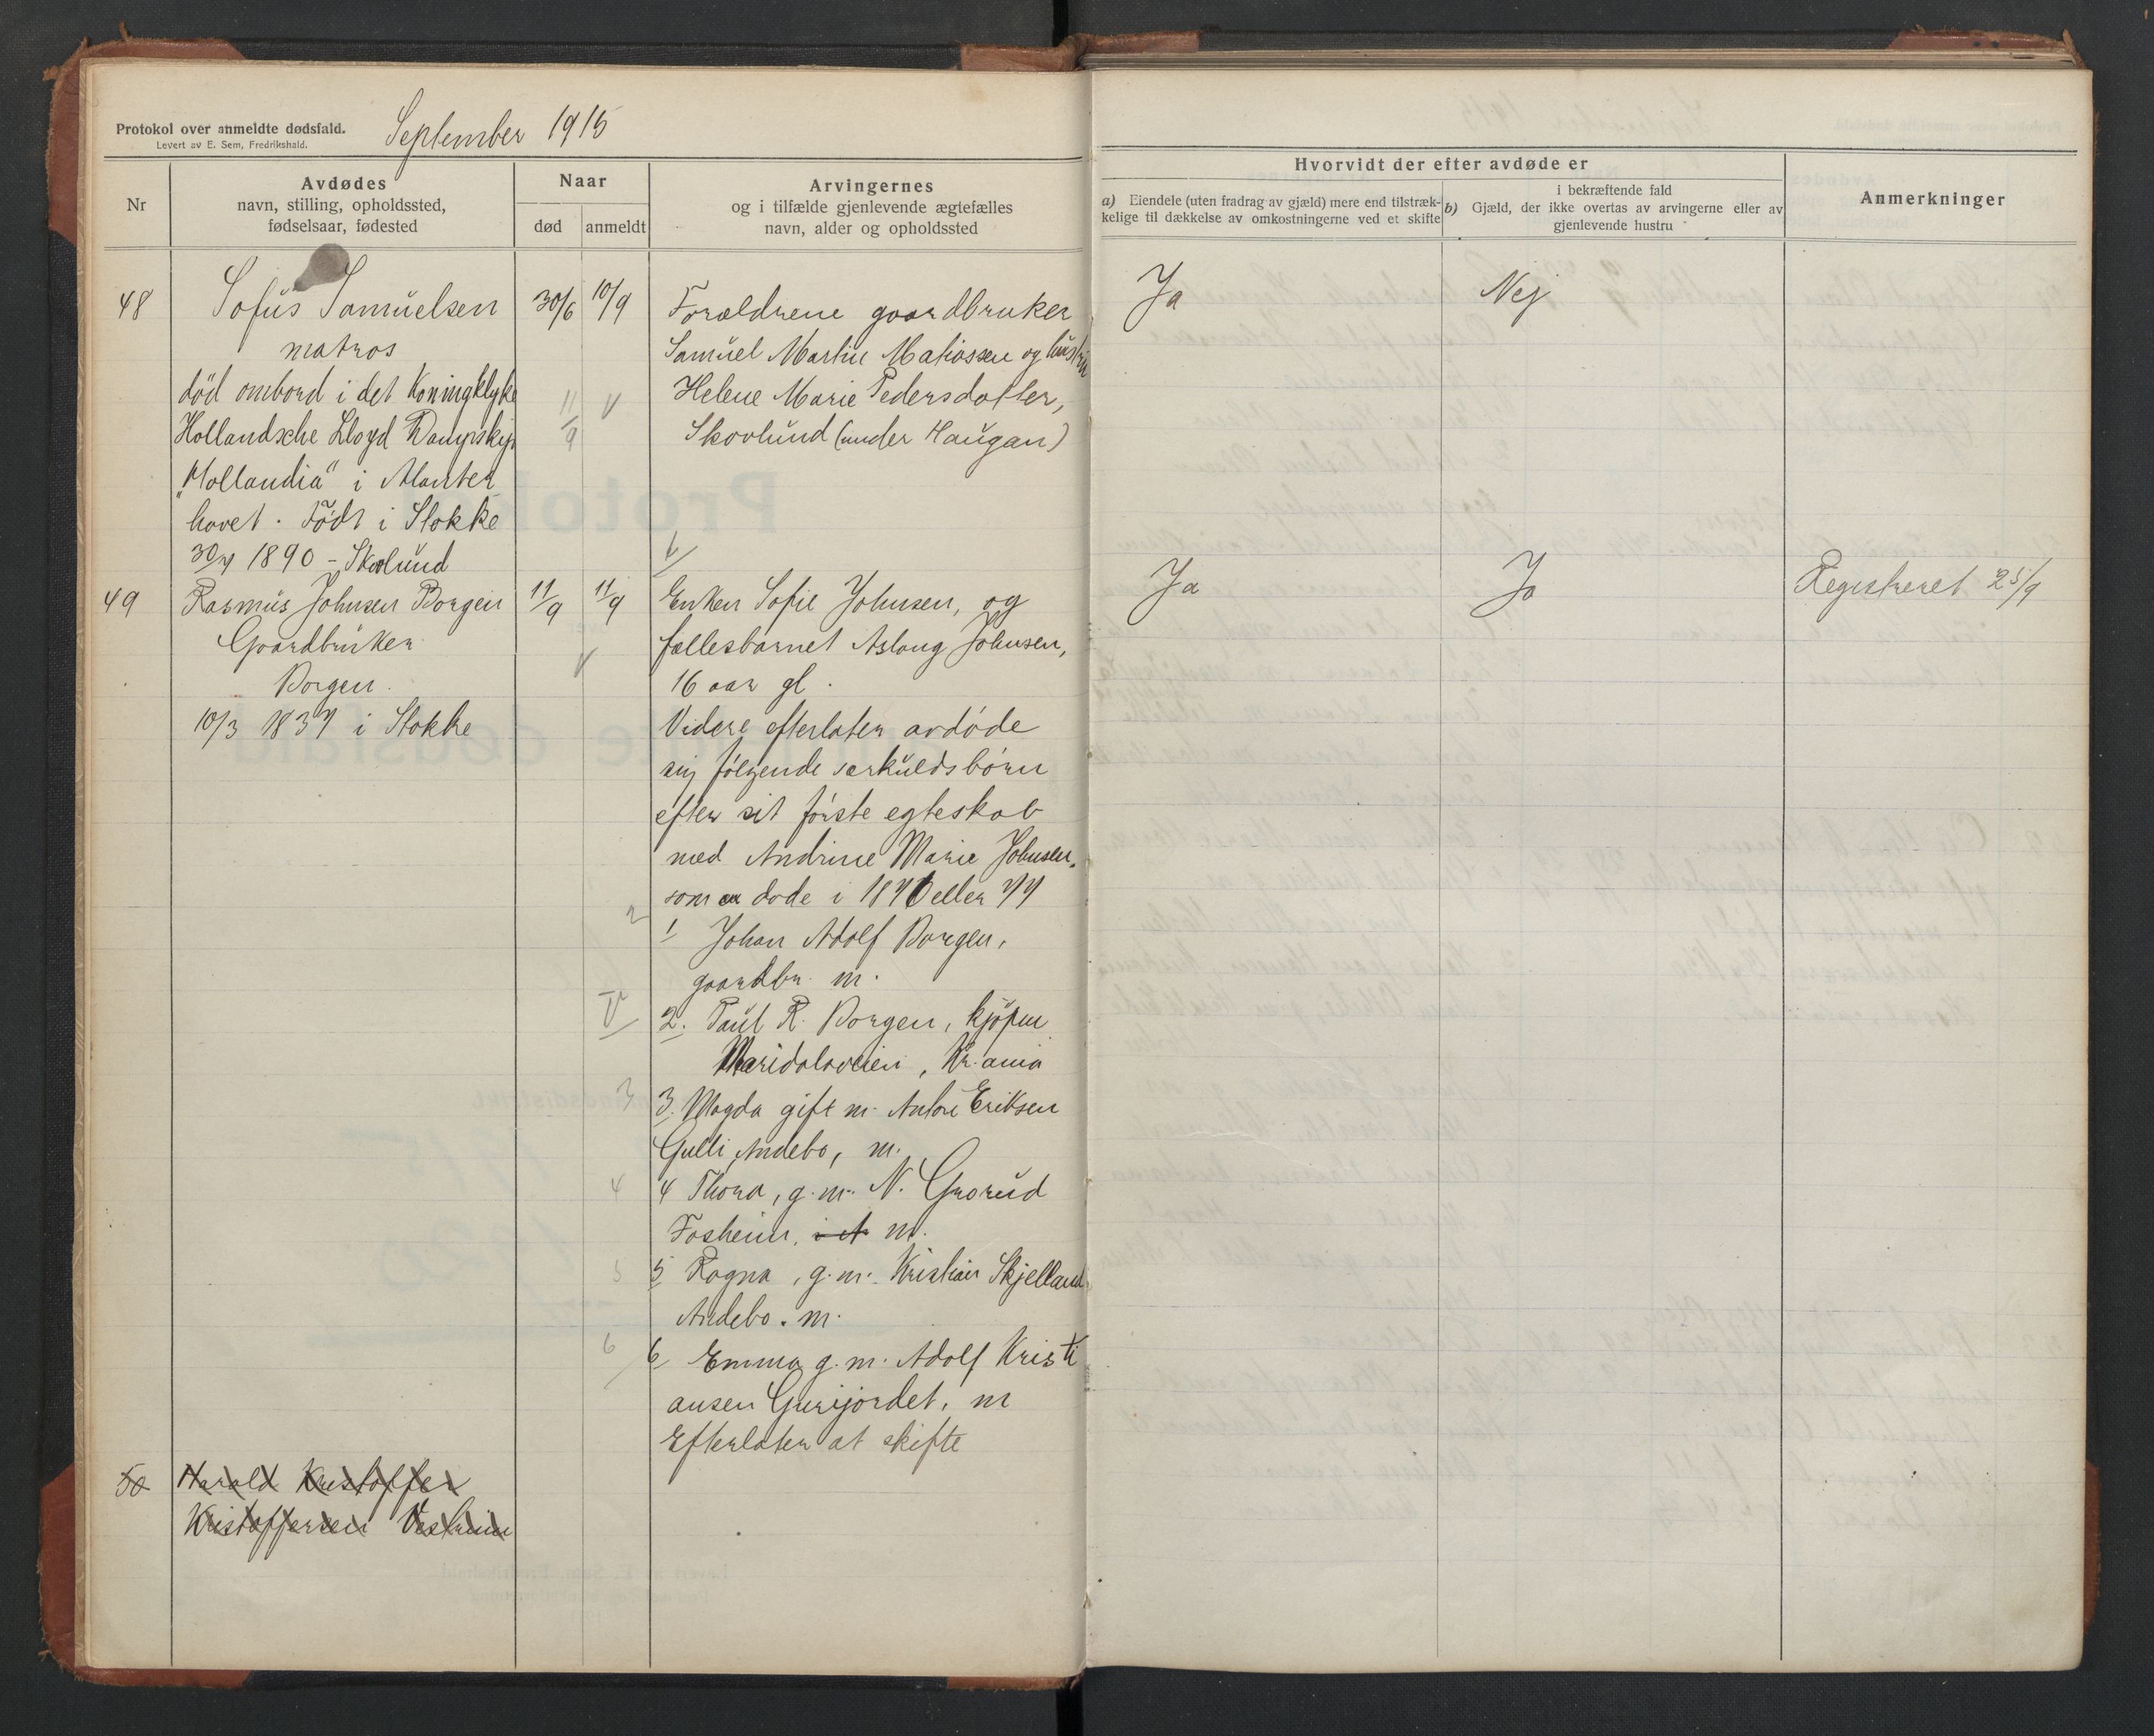 Protokol over anmeldte dødsfald.
Levert av E. Sem, Fredrikshald.
September 1915
Nr
Avdødes
navn, stilling, opholdssted,
fødselsaar, fødested
Naar
død
anmeldt
Arvingernes
og i tilfælde gjenlevende ægtefælles
navn, alder og opholdssted
Hvorvidt der efter avdøde er
a) Eiendele (uten fradrag av gjæld) mere end tilstræk-
kelige til dækkelse av omkostningerne ved et skifte
i bekræftende fald
b) Gjæld, der ikke overtas av arvingerne eller av
gjenlevende hustru
Anmerkninger
48
Sofus Samuelsen
matros
död ombord i det Koningklyke
Hollandsche Lloyd Dampskip
"Hollandia" i Atlanter
havet. Födt i Stokke
30/4 1890 - Skovlund
30/6
10/9
11/9
Forældrene gaardbruker
Samuel Martin Matiassen og hustru
Helene Marie Pedersdatter,
Skovlund (under Haugan)
Ja
Nej
49
Rasmus Johnsen Borgen
Gaardbruker
Borgen.
10/3 1837 i Stokke
11/9
11/9
Enken Sofie Johnsen, og
fællesbarnet Aslaug Johnsen,
16 aar gl.
Videre efterlater avdöde
sig fölgende særkuldsbörn
efter sit förste egteskab
med Andrine Marie Johnsen,
som döde i 1876 eller 77
1 Johan Adolf Borgen,
gaardbr. m.
2. Paul R. Borgen, kjöpm
Maridalsveien, Kr.ania
3. Magda gift m. Anton Eriksen
Gulli, Andebo, m.
4 Thora, g.m. N. Grorud
Fosheim, m.
5 Ragna, g.m. Kristian Skjelland
Andebo. m.
6 Emma g.m. Adolf Kristi
ansen Gurijordet, m
Efterlater at skifte
2
3
4
5
6
Ja
Ja
Registreret 25/9
50
Harald Kristoffer
Kristoffersen Vestheim